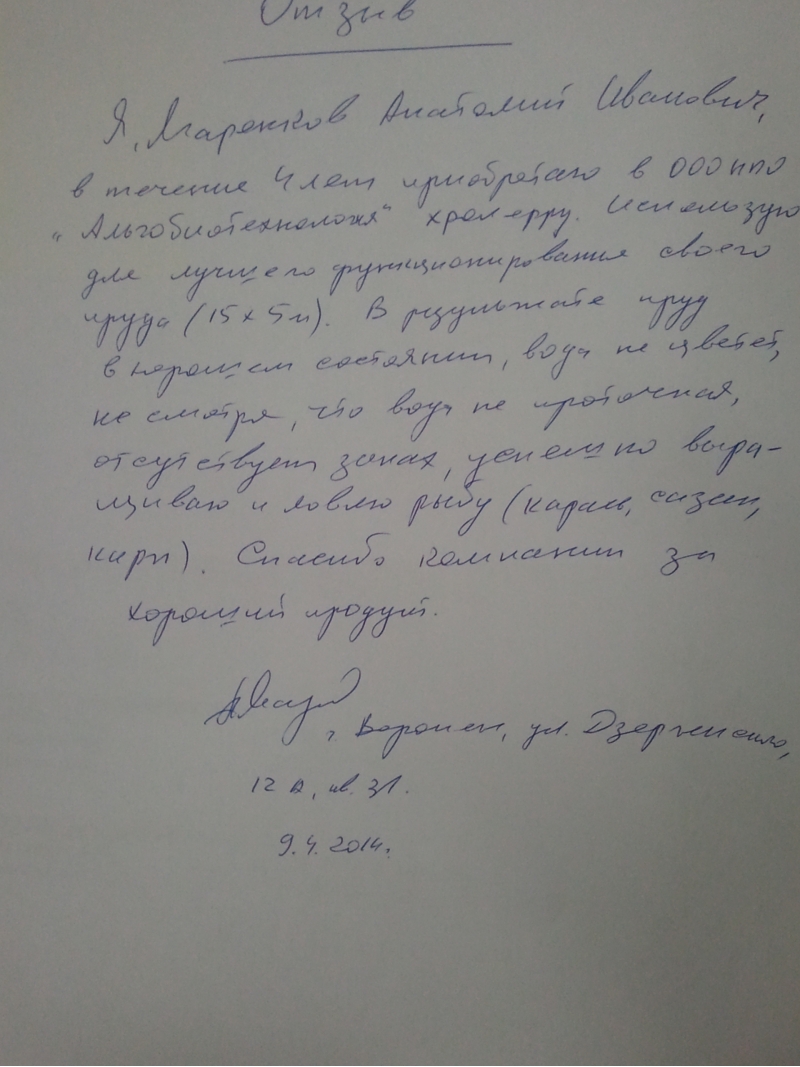 Отзыв
Я, Маренков Анатолий Иванович,
в течение 4 лет приобретаю в ООО НПО
"Альгобиотехнология" хлореллу. Использую
для лучшего функционирования своего
пруда (15 х 5 м). В результате пруд
в хорошем состоянии, вода не цветет,
не смотря, что вода не проточная,
отсутствует запах, успешно выра-
щиваю и ловлю рыбу (карась, сазан,
карп). Спасибо компании за
хороший продукт.
г. Воронеж, ул. Дзержинского,
12 А, кв. 31.
9.4.2014г.